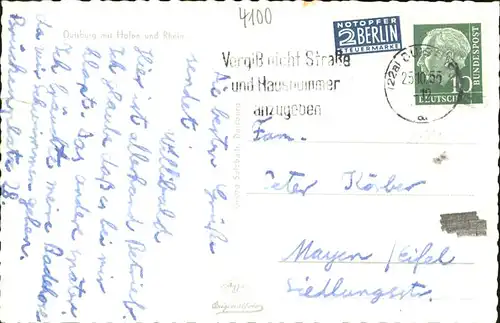 4100
Duisburg mit Hafen und Rhein
NOTOPFER
2 BERLIN
STEUERMARKE
Vergiß nicht Straße
und Hausnummer
anzugeben
(22a) DUISBURG
10
DEUTSCHE
BUNDESPOST
a
Fam.
Peter Körber
Mayen / Eifel
Siedlungsstr.
Die besten Grüße
sendet Willibald
Hier ist allerhand Betrieb.
Ich glaube daß es bei mir
klappt. Das andere später.
Ich brauchte meine Badehose
da wir schwimmen gehen.